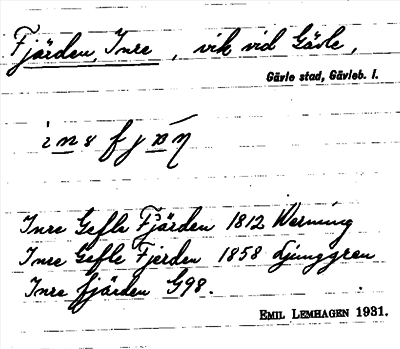 Fjärden, Inre, vik vid Gävle,
Gävle stad, Gävleb. l.
Inre Gefle Fjärden 1812 Werning
Inre Gefle Fjerden 1858 Ljunggren
Inre fjärden G98.
EMIL LEMHAGEN 1931.